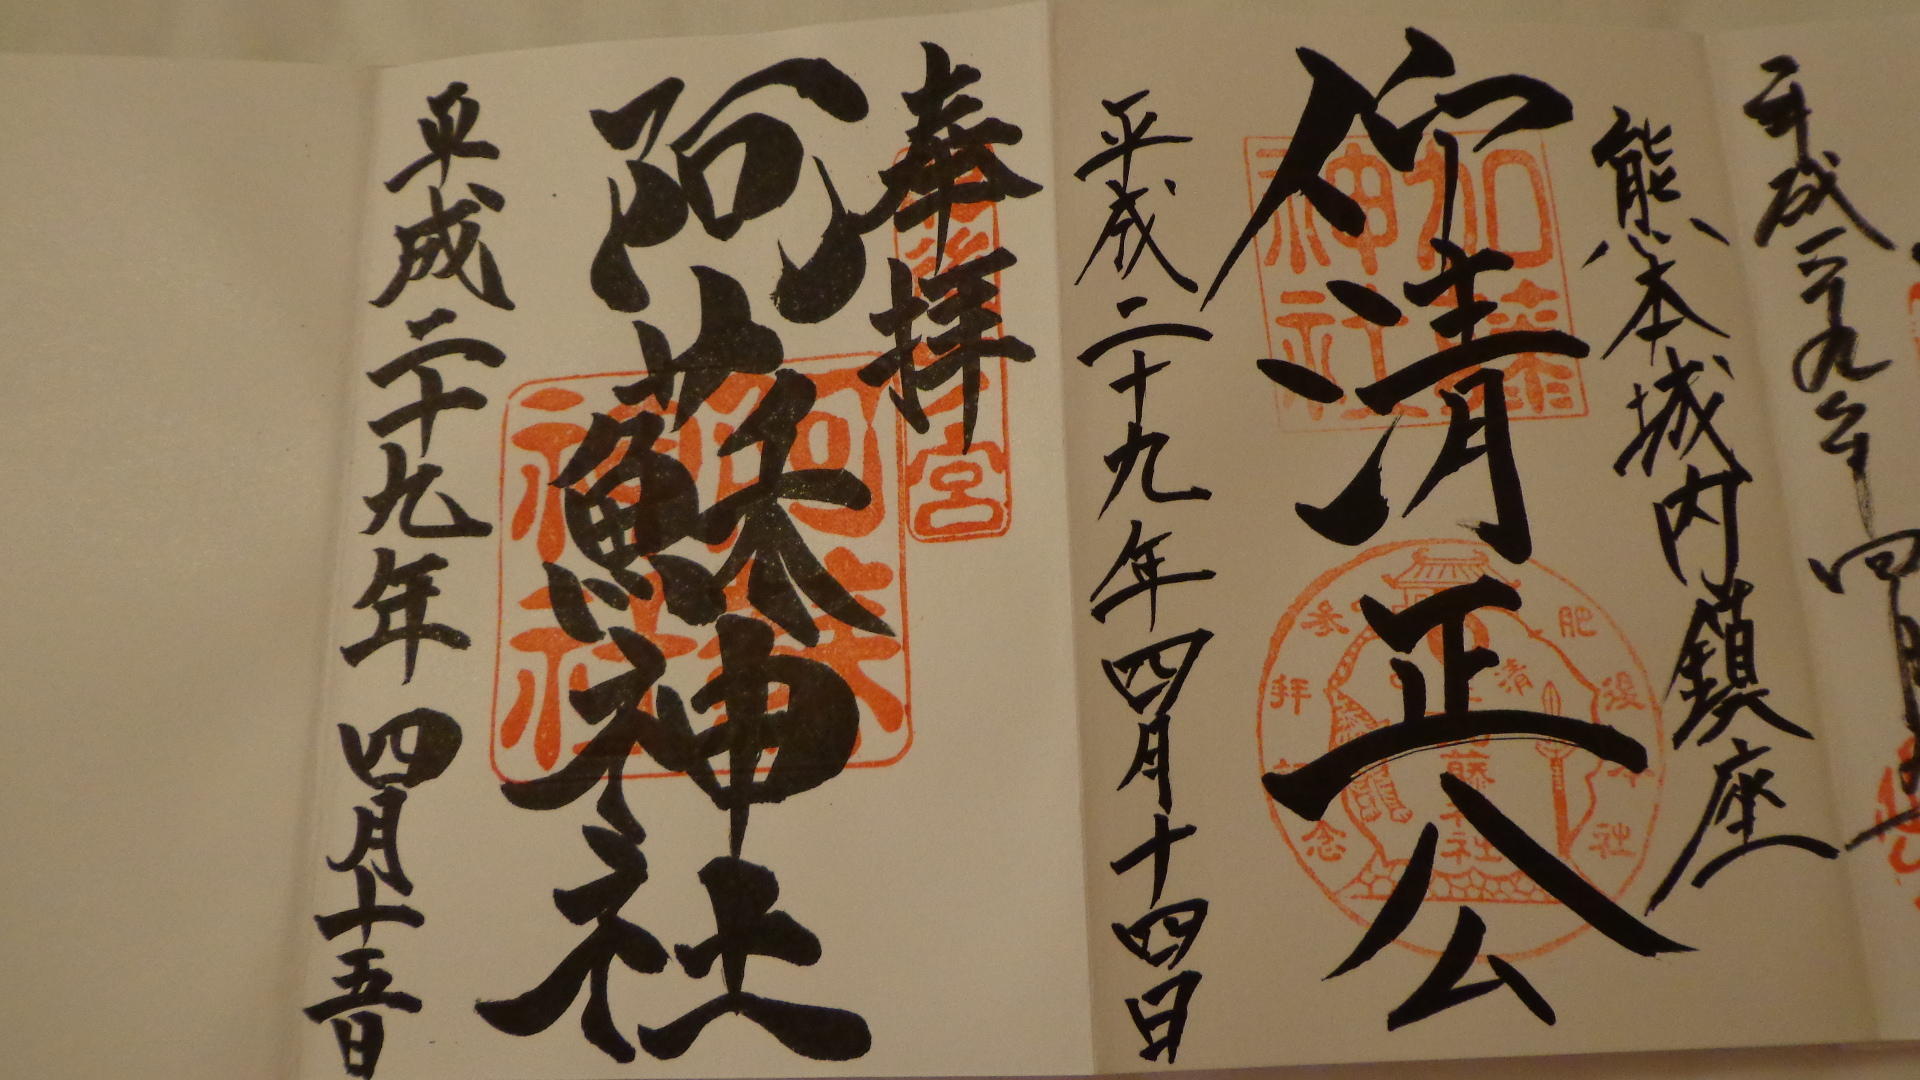 平成二十九年四月
熊本城内鎮座
仰清正公
加藤神社
肥後本社
清正公
加藤神社
参拝記念
平成二十九年四月十四日
奉拝
阿蘇神社
阿蘇神社
平成二十九年四月十五日